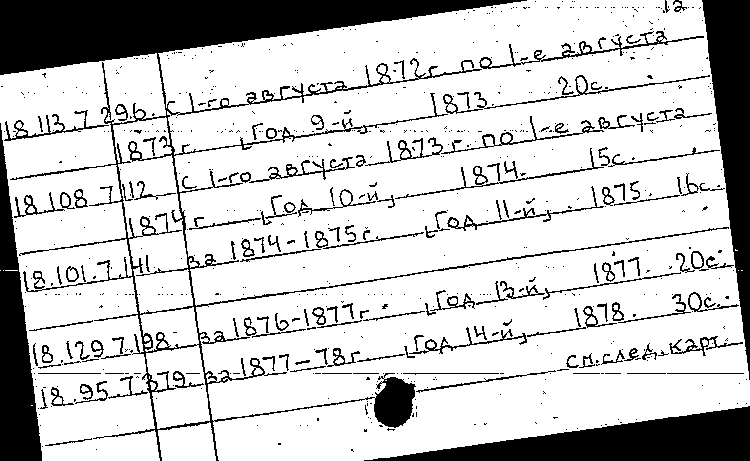 12
18.113.7.296. с 1-го августа 1872г. по 1-е августа
1873г. [Год 9-й] 1873. 20с.
18.108.7.112. с 1-го августа 1873г. по 1-е августа
1874г. [Год 10-й] 1874. 15с.
18.101.7.141. за 1874-1875г. [Год 11-й] 1875. 16с.
18.129.7.198. за 1876-1877г. [Год 13-й] 1877. 20с.
18.95.7.379. за 1877-78г. [Год 14-й] 1878. 30с.
см.след.карт.